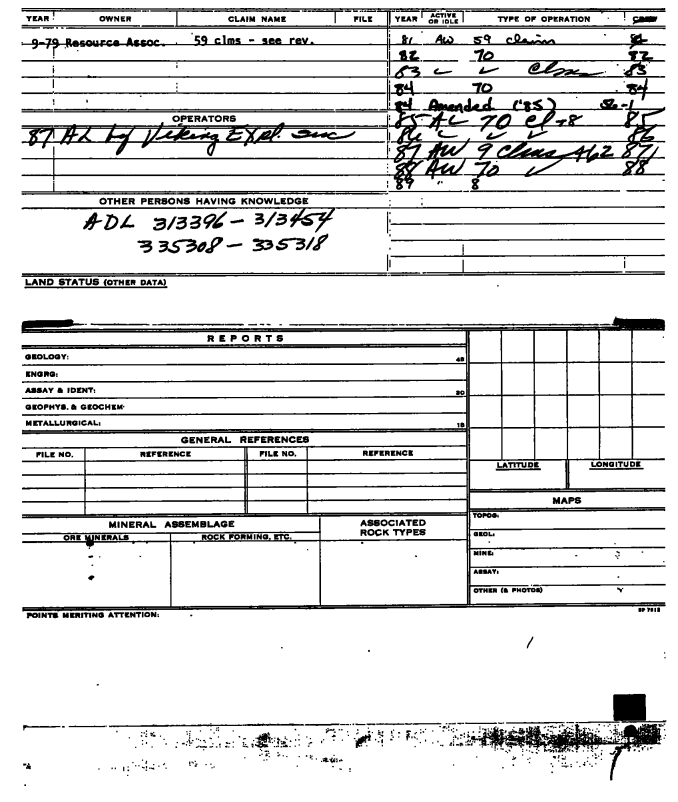 YEAR OWNER CLAIM NAME FILE YEAR ACTIVE OR IDLE TYPE OF OPERATION
9-79 Resource Assoc. 59 clms - see rev.
81 AW 59 claim
82 70 82
83 ✓ ✓ Clms 83
84 70 84
84 Amended ('85) 56-1
OPERATORS
85 AL 70 Cl 85
87 AL by Viking Expl. Inc
86 ✓ ✓ ✓ 86
87 AW 9 Clms A62 87
88 AW 70 ✓ 88
89 " 8
OTHER PERSONS HAVING KNOWLEDGE
ADL 313396 - 313454
335308 - 335318
LAND STATUS (OTHER DATA)
REPORTS
GEOLOGY:
ENGRG:
ASSAY & IDENT: 20
GEOPHYS. & GEOCHEM:
METALLURGICAL:
GENERAL REFERENCES
FILE NO. REFERENCE FILE NO. REFERENCE
LATITUDE LONGITUDE
MAPS
TOPOG.
GEOL:
MINE:
ASSAY:
OTHER (& PHOTOS)
MINERAL ASSEMBLAGE ASSOCIATED ROCK TYPES
ORE MINERALS ROCK FORMING, ETC.
POINTS MERITING ATTENTION: